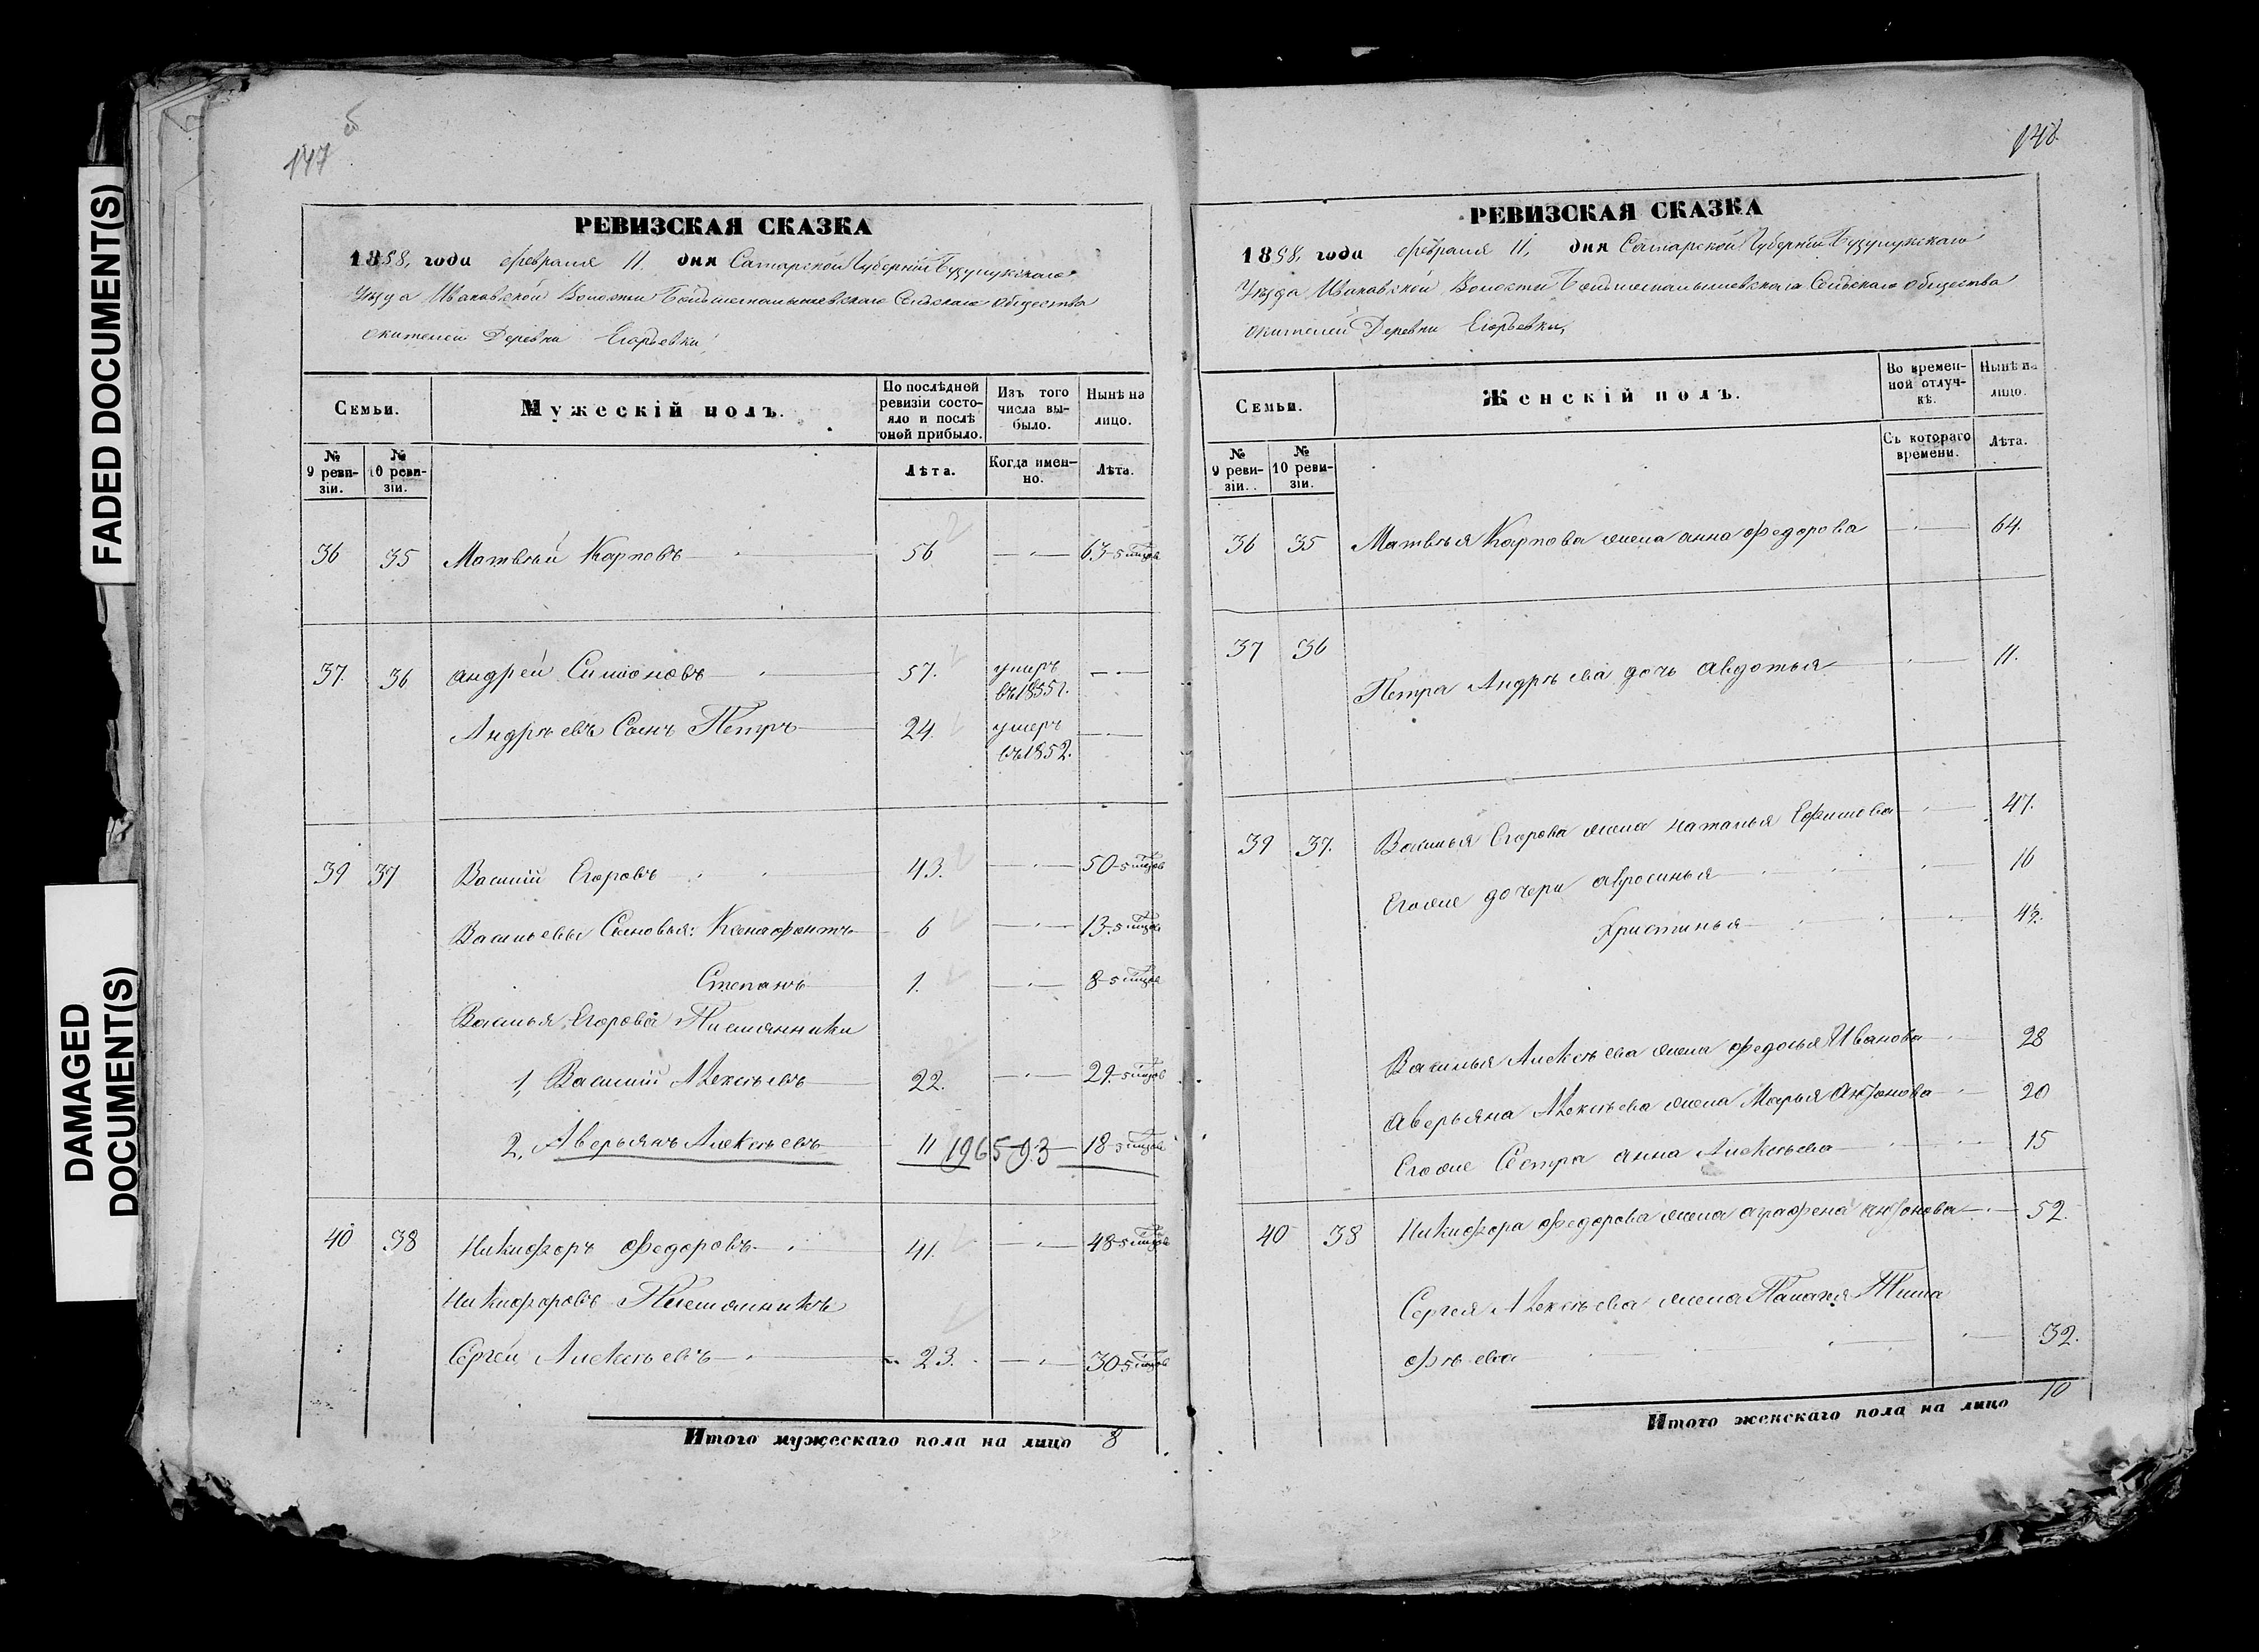 FADED DOCUMENT(S)
DAMAGED
DOCUMENT(S)
147
РЕВИЗСКАЯ СКАЗКА
1858, года февраля 11. дня Самарской Губерніи Бузулукскаго
Уѣзда Ивановской Волости Сельскаго Общества
жителей Деревни Егорьевки,
Семьи.
Мужескій полъ.
По послѣдней ревизіи состояло и послѣ оной прибыло.
Изъ того числа выбыло.
Нынѣ на лицо.
№ 9 ревизіи.
№ 10 ревизіи.
Лѣта.
Когда именно.
Лѣта.
36 35 Матвѣй Карповъ 56 63
37. 36 Андрей Симіоновъ 57. умеръ въ 1855 г.
Андрѣевъ Сынъ Петръ 24. умеръ въ 1852.
39 37 Василій Егоровъ 43. 50
Васильевы Сыновья: Ксенафонтъ 6 13
Степанъ 1. 8
Василья Егорова Племянники
1, Василий Алексѣевъ 22. 29
2, Аверьянъ Алексѣевъ 11 196593 18
40 38 Никифоръ Федоровъ 41. 48
Никифоровъ Племянникъ
Сергей Алексѣевъ 23. 30
Итого мужескаго пола на лицо 8
148
РЕВИЗСКАЯ СКАЗКА
1858, года февраля 11, дня Самарской Губерніи Бузулукскаго
Уѣзда Ивановской Волости Сельскаго Общества
жителей Деревни Егорьевки,
Семьи.
Женскій полъ.
Во временной отлучкѣ.
Нынѣ на лицо.
№ 9 ревизіи.
№ 10 ревизіи.
Съ котораго времени.
Лѣта.
36 35 Матвѣя Карпова жена анна Федорова 64.
37 36 Петра Андрѣева дочь Авдотья 11.
39 37. Василья Егорова жена наталья Ефимова 47.
Егоже дочери Афросинья 16
Христинья
Василья Алексѣева жена федосья Иванова 28
Аверьяна Алексѣева жена Марья Антонова 20
Егоже Сестра анна Алексѣева 15
40 38 Никифора Федорова жена аграфена антонова 52.
Сергея Алексѣева жена Палагея Тима
фѣева 32.
Итого женскаго пола на лицо 10